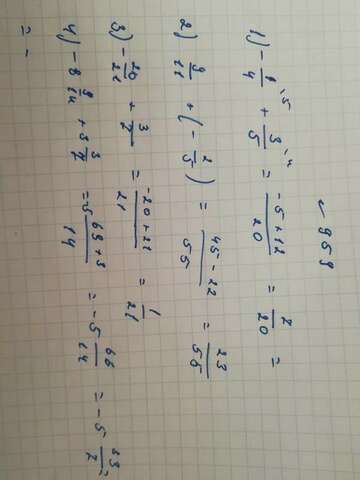 ~ 959
1) - 1/4 ^5 + 3/5 ^4 = -5+12/20 = 2/20 =
2) 9/11 + (- 2/5) = 45-22/55 = 23/55
3) - 20/21 + 3/7 = -20+21/21 = 1/21
4) - 8 9/14 + 3 3/7 = 5 69+3/14 = -5 66/14 = -5 33/7 =
= -